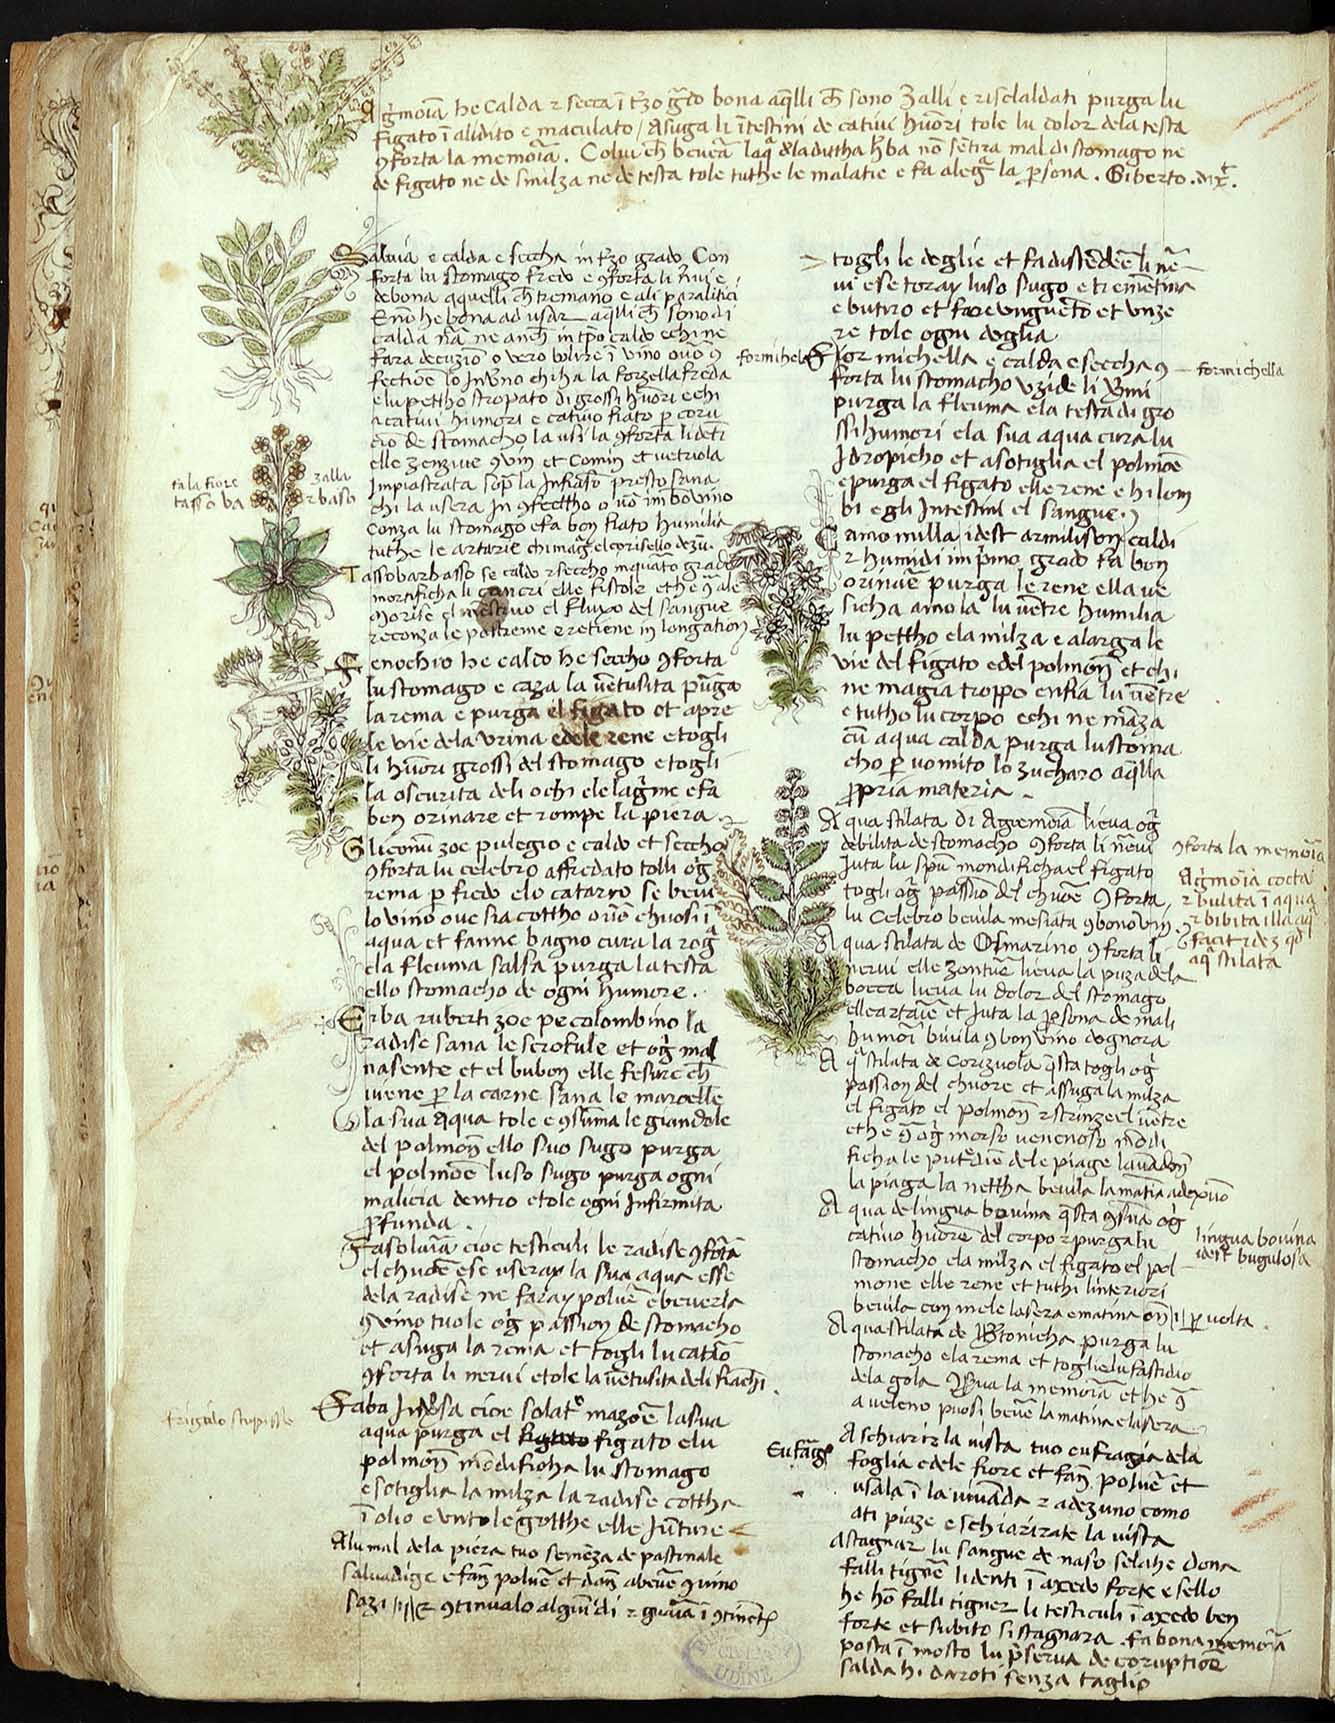 Agrimoīa he Calda ⁊ secca ī t͂zo g͂do bona aq̄lli ch̄ sono Zalli e risclaldati purga lu
figato ī alidito e maculato / Asuga li ītestini de cativi hūori tole lu dolor dela testa
ꝯforta la memoīa. Colui ch̄ beverā laq̄ dela dittha h̄ba nō sētira mal di stomago ne
de figato ne de smilza ne de testa tole tutthe le malatie e fa alegr̄ la ꝑsona. Giberto.
Salvia e calda e seccha in t͂zo grado Con
forta lu stomago fredo e ꝯforta li n̄rvi e
de bona aquelli ch̄ tremano e ali paralitici
E no he bona ad usar aq̄lli ch̄ sono di
calda
fara decuzion̄ o vero bolire ī vino ovo ꝯ
fection̄ lo īnv̄no chi ha la forzella freda
e lu pettho stropato di grossi hūori e chi
a cativi humori e cativo fiato ꝑ coru
cio de stomacho la usi la ꝯforta li dēti
elle zenzive ꝯ vin et Comin et vetriola
Impiastrata sop̄ la Infiaso presto sana
chi la usera In ꝯfecttho o vō im bo vino
conza lu stomago e fa bon fiato humilia
tutthe le artarie
fa la fiore zalla
tasso barbaso
Tassobarbasso se caldo ⁊ seccho in quato grado
mortificha li cancri elle fistole
morise el mestruo el fluxo del sangue
reconza le postreme e retiene in longation
Fenochio he caldo he seccho ꝯforta
lu stomago e caza la vētusita purga
la rema e purga el figato et apre
le vie dela urina e dele rene e togli
li hūori grossi del stomago e togli
la oscurita deli ochi ele lagr̄me e fa
ben orinare et rompe la piera.
Gliconū zoe pulegio e caldo et seccho
ꝯforta lu celebro affredato tolli ogr̄
rema ꝑ fredo elo catarro se bevi
lo vino ove sia cottho o vō chuosi ī
aqua et fanne bagno cura la rogr̄
ela fleuma salsa purga la testa
ello stomacho de ogni humore.
Erba ruberti zoe pe colombino la
radise sana le scrofule et ogr̄ mal
nasente et el bubon elle fesure ch̄
viene ꝑ la carne sana le marcelle
la sua aqua tole e ꝯsuma le giandole
del polmon̄ ello suo sugo purga
el polmōe lu so sugo purga ogni
malicia dentro e tole ogni infirmita
ꝓfunda.
Fasolaīa cioe testiculi le radise ꝯforta
el chuōe e se useray la sua aqua esse
dela radise ne faray polvē e beverla
ꝯ vino tuole ogr̄ passion de stomacho
et asuga la rema et togli lu catāo
ꝯforta li nervi e tole la vētusita deli fianchi.
frigulo stopisse
Faba Inv̄sa cioe solatr̄ mazōe la sua
aqua purga el figato figato e lu
polmon̄ mōdificha lu stomago
e sotiglia la milza la radise cottha
ī olio e unto le gotthe elle iūture
A lu mal dela piera tuo semēza de pastinale
salvadige e fan̄ polvē et dan̄ a bevē ꝯ vino
togli le doglie et fa distēdē li nē
vi e se toray lu so sugo e tremetina
e butiro et fao e unguēto et unze
re tole ogni doglia
formichela
Formichella e calda e seccha ꝯ
formichella
forta lu stomacho uzide li v̄mi
purga la fleuma e la testa di gro
ssi humori e la sua aqua cura lu
Idropicho et asotiglia el polmōe
e purga el figato elle rene e hi lom
bi e gli Intestini el sangue.
Camomilla idest armilison caldi
⁊ humidi im p̄mo grado fa bon
orinare purga le rene ella ve
sicha amola lu vētre humilia
lu pettho e la milza e alarga le
vie del figato e del polmon̄ et chi
ne magia troppo enfia lu vētre
e tutho lu corpo e chi ne māza
cū aqua calda purga lu stoma
cho ꝑ vomito lo zucharo aq̄lla
ꝓpria materia.
Aqua stilata di Agremoīa lieva ogr̄
debilita de stomacho ꝯforta li nervi
Iuta lu spū mondificha el figato
togli ogr̄ passiō del chuōe ꝯforta
lu Celebro bevila mesiata ꝯ bono vin.
ꝯforta la memoīa
Agr̄moīa cocta
⁊ bulita ī aqua
⁊ bibita illa aq̄
facit idez qd̄
aq̄ stilata
Aqua stilata de Osmarino ꝯforta li
nervi elle zontūe lieva la puza dela
bocca lieva lu dolor del stomago
elle artarie et iuta la ꝑsona de mali
humori bivila ꝯ bon vino dognora
Aq̄ stilata de Corizuola q̄sta togli ogr̄
passion del chuore et assuga la milza
el figato el polmon̄ ⁊ strinze el vētre
et he ꝯ ogr̄ morso venenoso mōdi
ficha le putredīe dele piage lavādon̄
la piaga la nettha bevila la matīa a dezuno
Aqua de lingua bovina q̄sta ꝯsuā ogr̄
cativo hūore del corpo ⁊ purga lu
stomacho e la milza el figato el pol
mone elle rene et tuthi linteriori
bevila con mele la sera e matina on̄ ꝑ volta.
lingua bovina
idest bugulosa
Aqua stilata de Btonicha purga lu
stomacho e la rema et toglie lu fastidio
dela gola ꝯs̄va la memoīa et he ꝯ
a veleno puosi bevē la matina e la sera
Eufrāg
A schiarir la vista tuo eufragia dela
foglia e dele fiore et fan̄ polvē et
usala ī la vivāda ⁊ a dezuno como
ati piaze e schiarirate la vista
A stagnar lu sangue de naso se la he dona
falli tignē li denti ī axedo forte e sello
he hō falli tigner li testiculi ī axedo ben
forte et subito si stagnara. fa bona memoīa
posta ī mosto lu p̄serva de coruptiōe
salda hi da roti senza taglio
CIVICA
UDINE